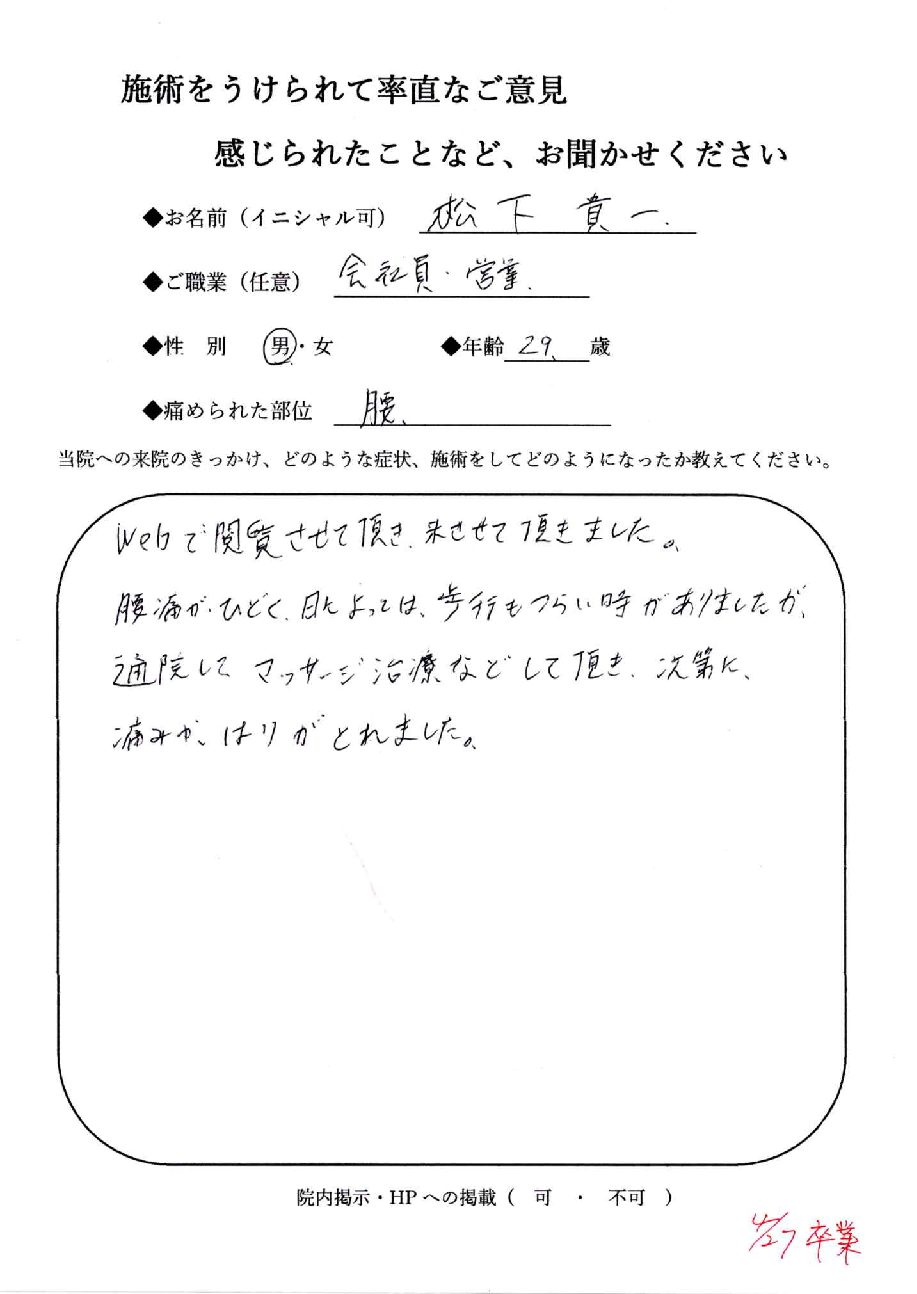 施術をうけられて率直なご意見
感じられたことなど、お聞かせください
◆お名前（イニシャル可） 松下 貴一.
◆ご職業（任意） 会社員・営業.
◆性 別 男・女 ◆年齢 29、 歳
◆痛められた部位 腰、
当院への来院のきっかけ、どのような症状、施術をしてどのようになったか教えてください。
Webで閲覧させて頂き、来させて頂きました。
腰痛がひどく、日によっては、歩行もつらい時がありましたが、
通院してマッサージ治療などして頂き、次第に、
痛みが、はりがとれました。
院内掲示・HPへの掲載（ 可 ・ 不可 ）
4/27 卒業